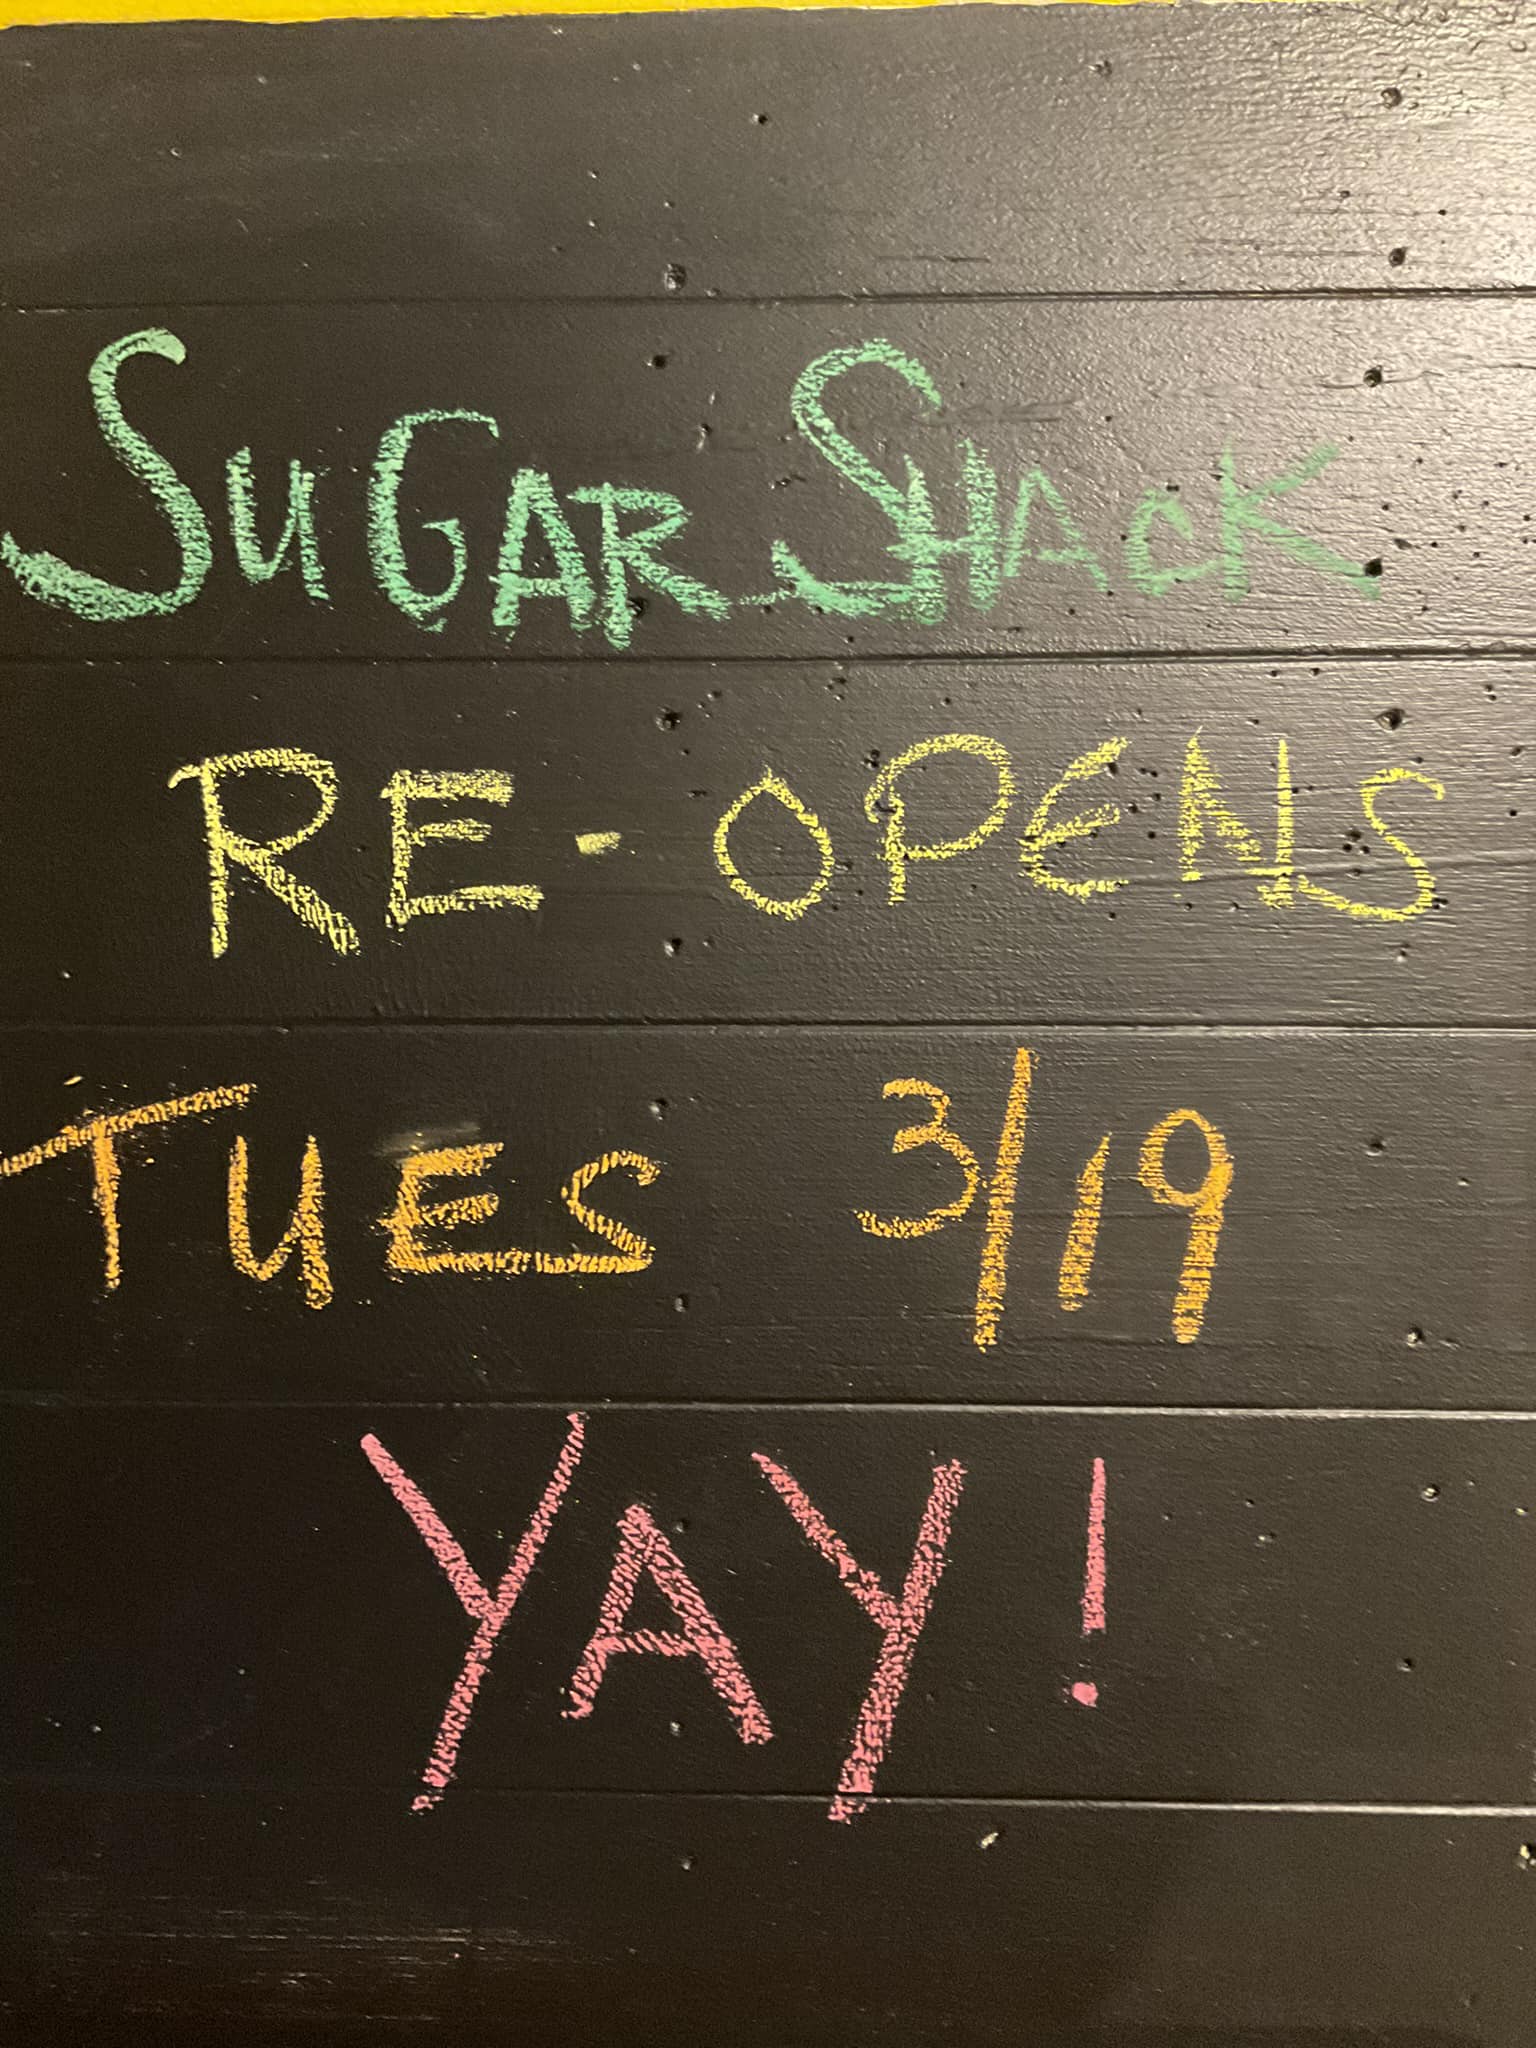 SUGAR SHACK
RE-OPENS
TUES 3/19
YAY!